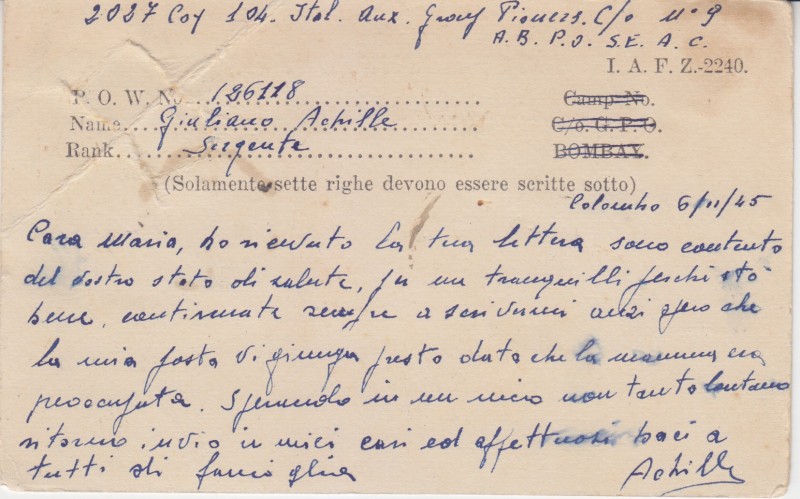 2027 Coy 104. Ital. Aux. Group Pioneers. C/o N° 9
A. B. P. O. S. E. A. C.
I. A. F. Z.-2240.
P. O. W. No. 126118 Camp No.
Name Giuliano Achille C/o. G. P. O.
Rank Sergente BOMBAY.
(Solamente sette righe devono essere scritte sotto)
Colombo 6/11/45
Cara Maria, ho ricevuto la tua lettera sono contento
del vostro stato di salute, per me tranquilli perchè stò
bene, continuate sempre a scrivermi anzi spero che
la mia posta vi giunga presto data che la mamma era
preoccupata. Sperando in un mio non tanto lontano
ritorno invio i miei cari ed affettuosi baci a
tutti di famiglia Achille